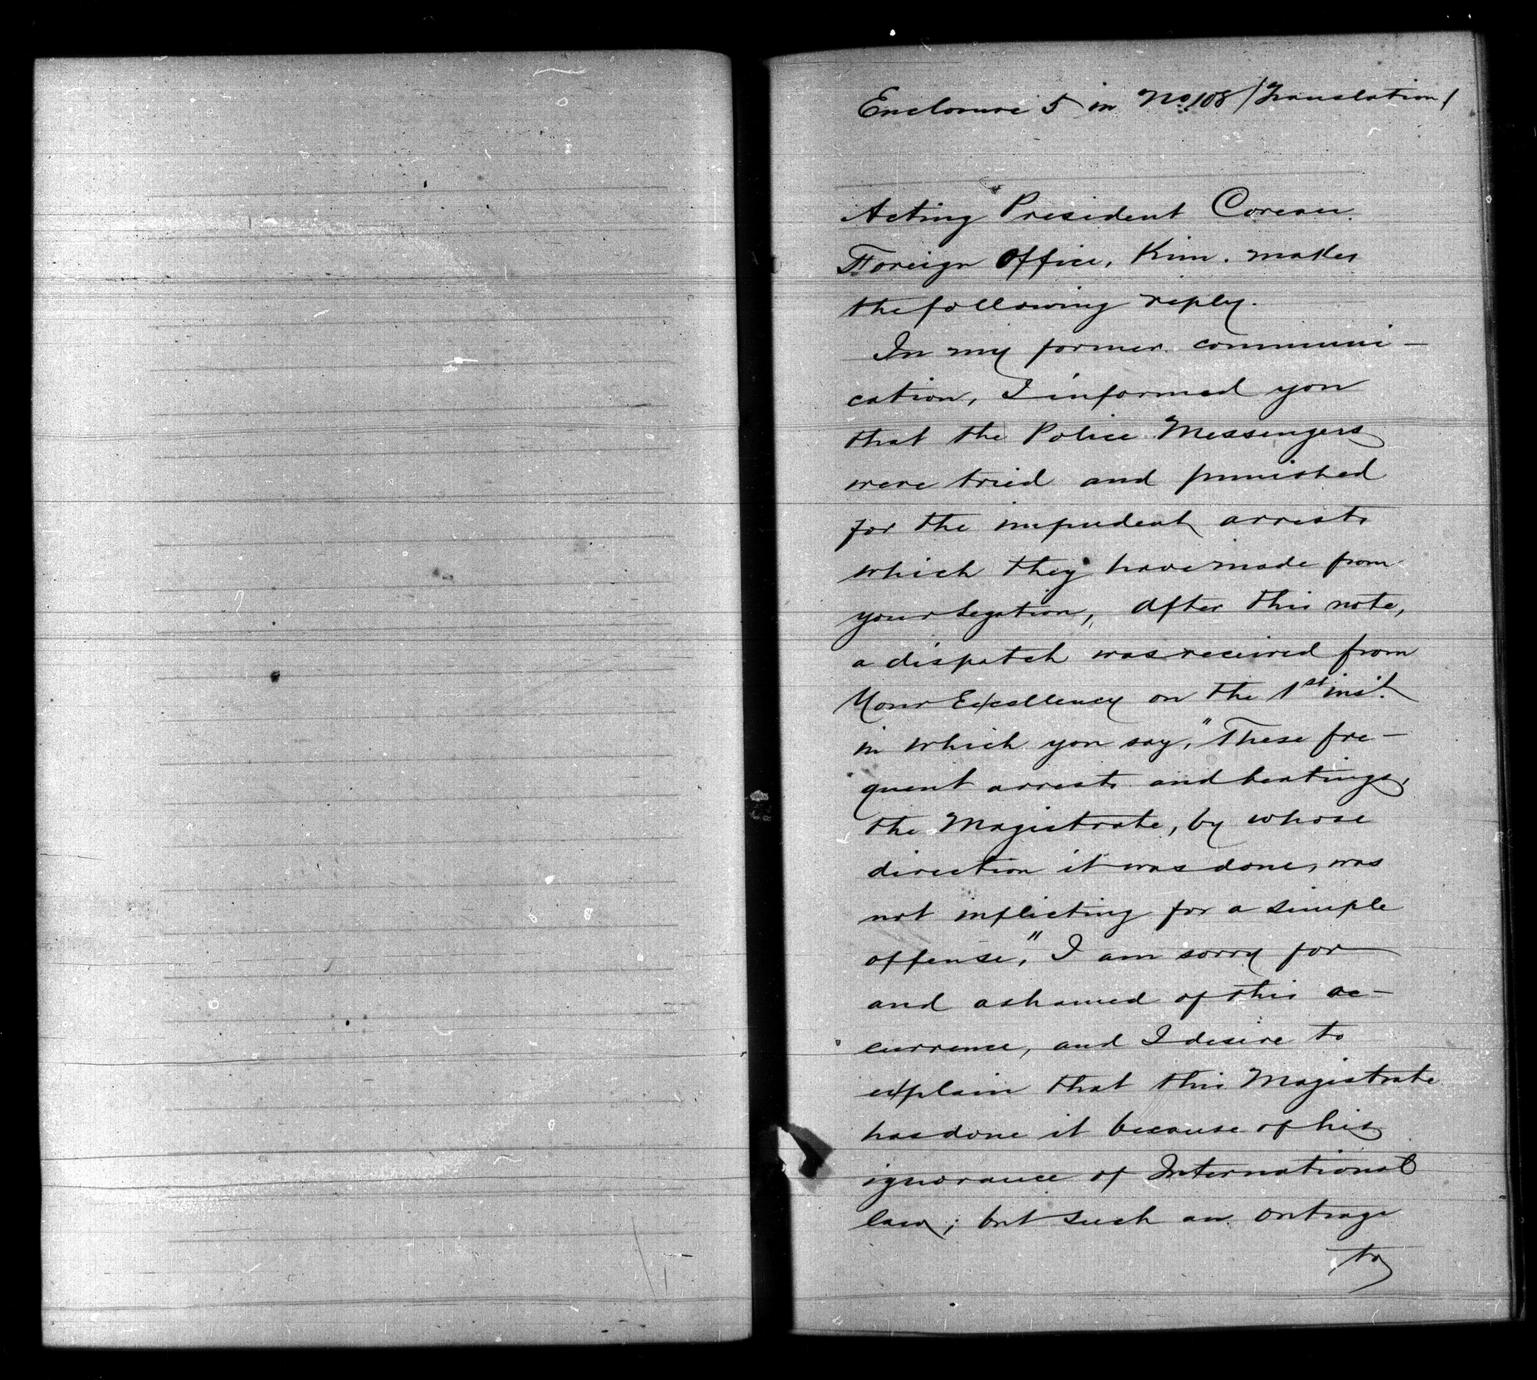 Enclosure 5 in No. 108 (Translation)
Acting President Corean
Foreign Office, Kim. makes
the following reply.
In my former communi-
cation, I informed you
that the Police Messengers
were tried and punished
for the impudent arrests
which they have made from
your legation, After this note,
a dispatch was received from
Your Excellency on the 1st inst.
in which you say, "These fre-
quent arrests and beatings,
the Magistrate, by whose
direction it was done, was
not inflicting for a simple
offense," I am sorry for
and ashamed of this oc-
currence, and I desire to
explain that this Magistrate
has done it because of his
ignorance of International
law; but such an outrage
to